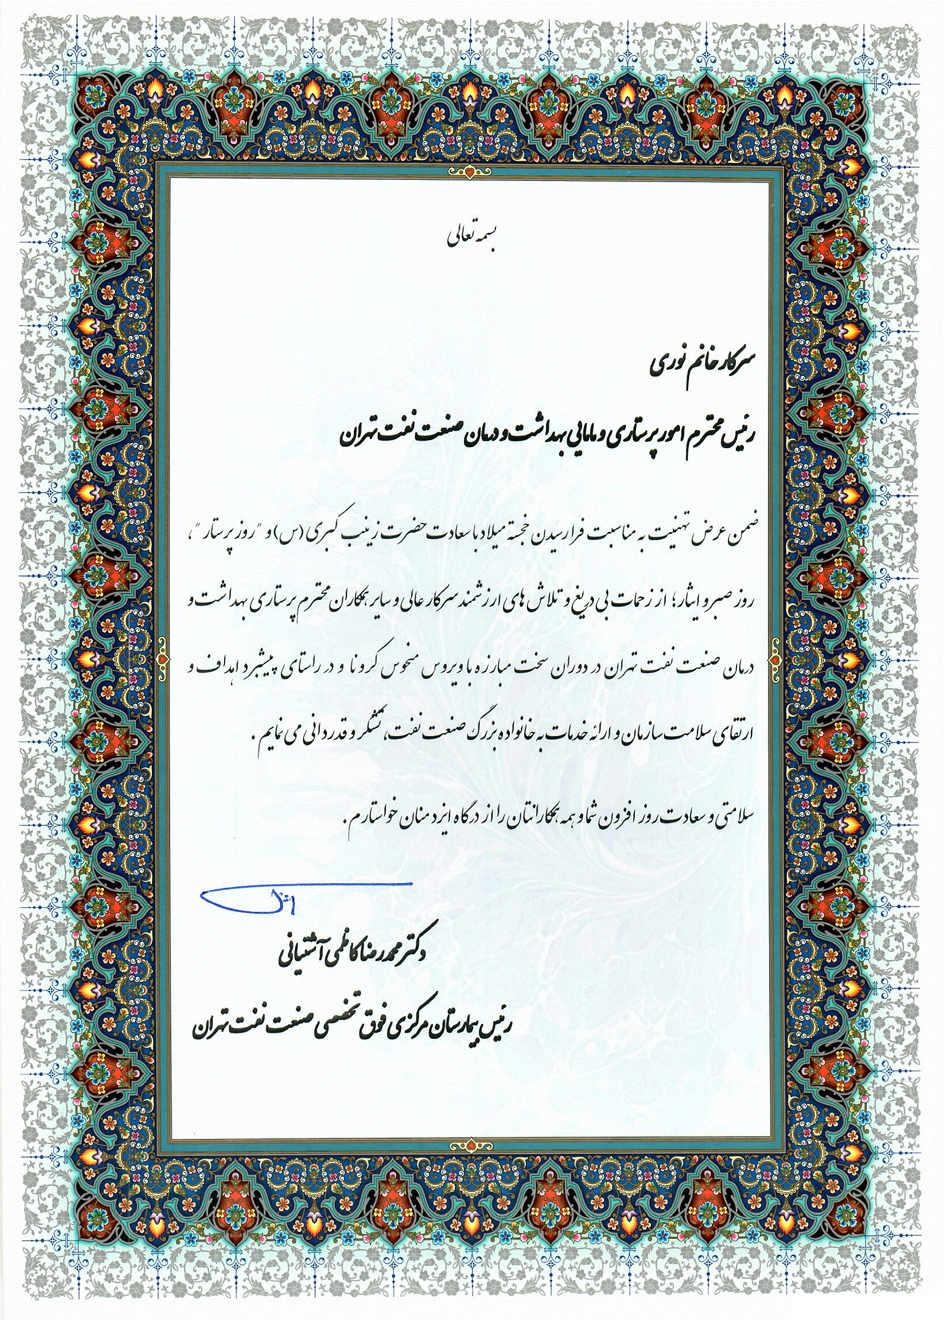 بسمه تعالی
سرکار خانم نوری
رئیس محترم امور پرستاری و مامایی بهداشت و درمان صنعت نفت تهران
ضمن عرض تهنیت به مناسبت فرا رسیدن خجسته میلاد با سعادت حضرت زینب کبری (س) و "روز پرستار"،
روز صبر و ایثار؛ از زحمات بی دریغ و تلاش های ارزشمند سرکار عالی و سایر همکاران محترم پرستاری بهداشت و
درمان صنعت نفت تهران در دوران سخت مبارزه با ویروس منحوس کرونا و در راستای پیشبرد اهداف و
ارتقای سلامت سازمان و ارائه خدمات به خانواده بزرگ صنعت نفت، تشکر و قدردانی می نمایم .
سلامتی و سعادت روز افزون شما و همه همکارانتان را از درگاه ایزد منان خواستارم .
دکتر محمدرضا کاظمی آشتیانی
رئیس بیمارستان مرکزی فوق تخصصی صنعت نفت تهران